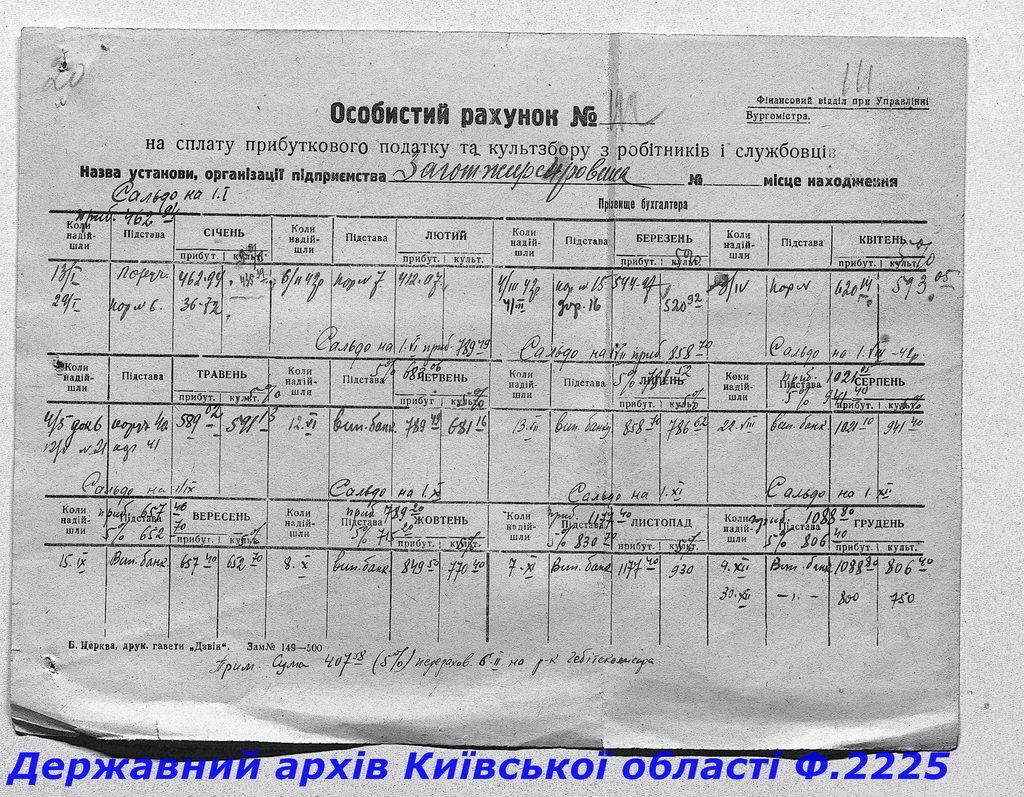 20
111
Фінансовий відділ при Управлінні
Бургомістра.
Особистий рахунок №
на сплату прибуткового податку та культзбору з робітників і службовців
Назва установи, організації підприємства № місце находження
Сальдо на 1.I
приб. 462 94
Прізвище бухгалтера
Коли надій-шли Підстава СІЧЕНЬ прибут. культ. Коли надій-шли Підстава ЛЮТИЙ прибут. культ. Коли надій-шли Підстава БЕРЕЗЕНЬ прибут. культ. Коли надій-шли Підстава КВІТЕНЬ прибут. культ.
13/I 462.94 6/II 42р пор. 7. 412.07 4/III 42р пор. 15 544.97 8/IV пор. 620 14 593.05
29/I пор. 6. 36-72 520 92
Сальдо на 1.VI приб. 789 49 Сальдо на VII приб. 858 70 Сальдо на 1.VIII - 42р.
5% 683 06 приб. 1021
5% 941 40
Коли надій-шли Підстава ТРАВЕНЬ прибут. культ. Коли надій-шли Підстава ЧЕРВЕНЬ прибут. культ. Коли надій-шли Підстава ЛИПЕНЬ прибут. культ. Коли надій-шли Підстава СЕРПЕНЬ прибут. культ.
589 02 591 13 12.VI вип. банк. 789 49 681 16 13.VII вип. банку 858 70 786 62 22.VIII вип. банк. 1021 10 941 40
Сальдо на 1/IX Сальдо на 1.X Сальдо на 1.XI Сальдо на 1.XII
приб. 657 40 приб. 789 20 приб. 1177 40 приб. 1088 80
5% 652 70 5% 715 20 5% 830 70 5% 806 40
Коли надій-шли Підстава ВЕРЕСЕНЬ прибут. культ. Коли надій-шли Підстава ЖОВТЕНЬ прибут. культ. Коли надій-шли Підстава ЛИСТОПАД прибут. культ. Коли надій-шли Підстава ГРУДЕНЬ прибут. культ.
15.IX Вип. банк. 657 40 652 70 8.X вип. банк. 849 50 770 40 7-XI Вип. банк 1177 40 930 9.XII Вип. банк 1088 80 806 40
30.XII -"- 800 750
Б. Церква, друк. газети „Дзвін“. Зам№ 149—500
Прим. Сума 407 58 (5%) перерахов. на р-к Гебітскомісара
Державний архів Київської області Ф.2225